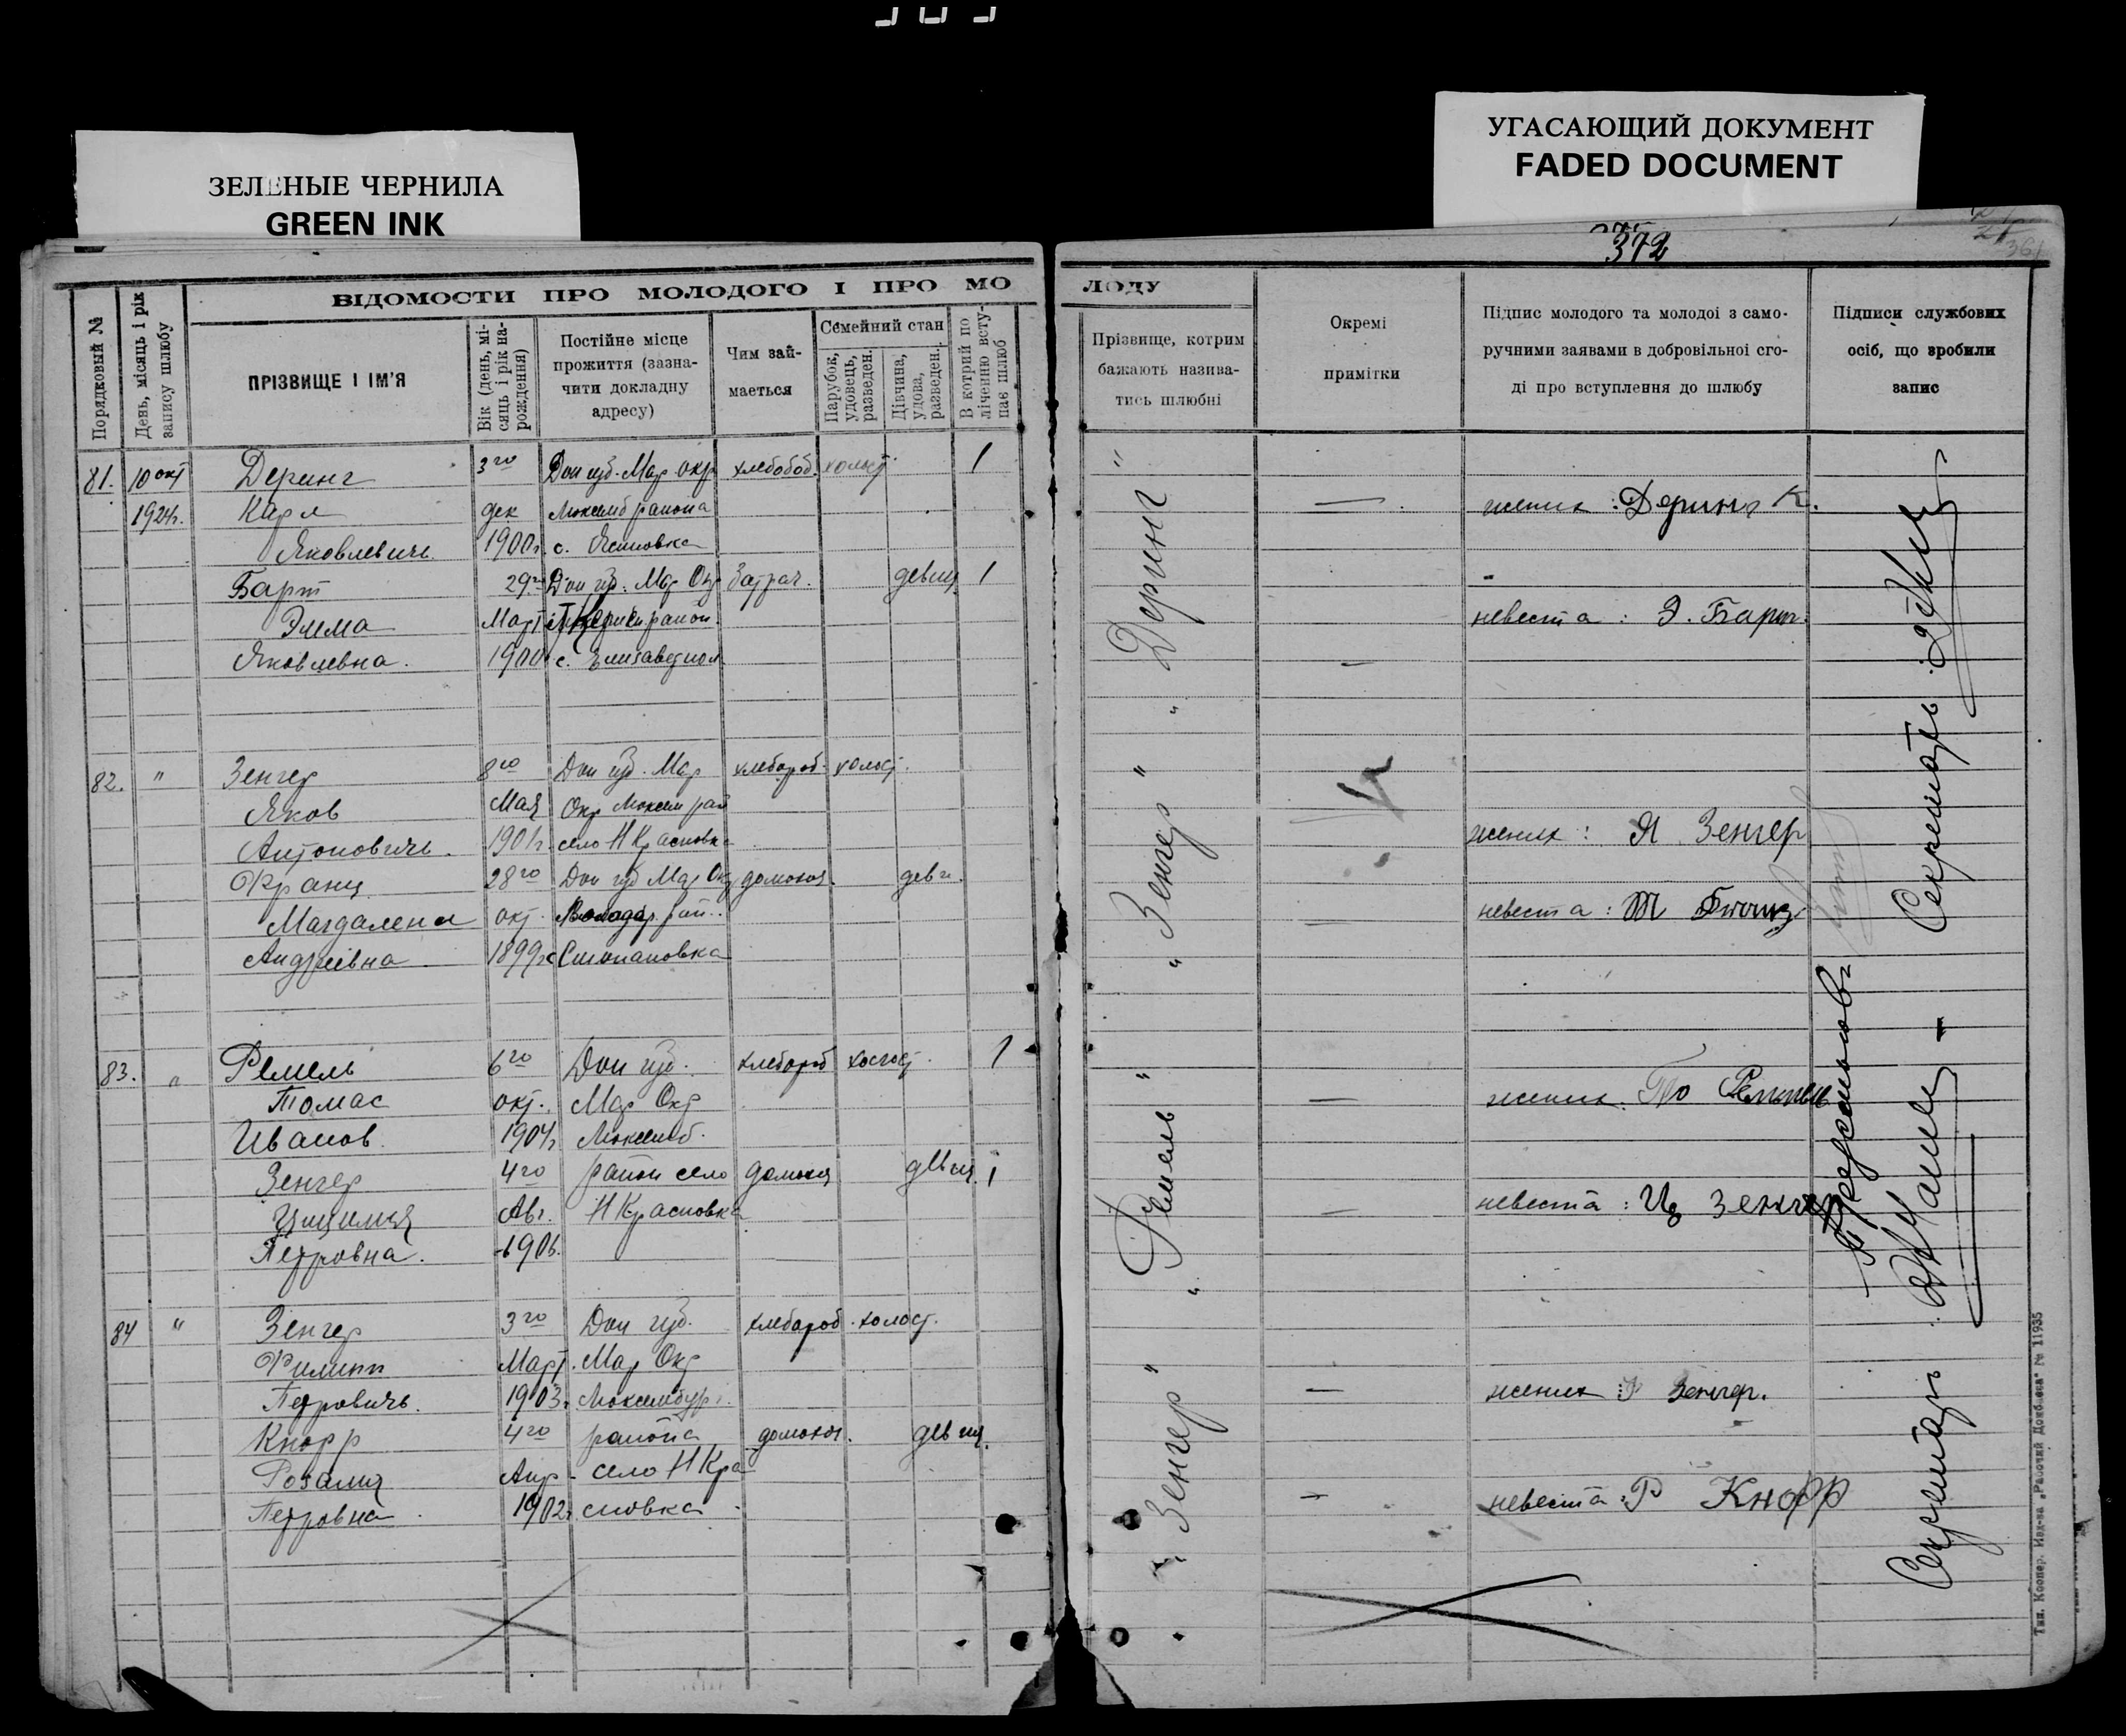 ЗЕЛЕНЫЕ ЧЕРНИЛА
GREEN INK
УГАСАЮЩИЙ ДОКУМЕНТ
FADED DOCUMENT
372
ВІДОМОСТИ ПРО МОЛОДОГО І ПРО МО
ЛОДУ
Порядковый №
День, місяць і рік
запису шлюбу
ПРІЗВИЩЕ І ІМ'Я
Вік (день, мі-
сяць і рік на-
рождення)
Постійне місце
прожиття (зазна-
чити докладну
адресу)
Чим зай-
мається
Семейний стан
Парубок,
удовець,
разведен.
Дівчина,
удова,
разведен.
В котрий по
ліченню всту-
пає шлюб
Прізвище, котрим
бажають назива-
тись шлюбні
Окремі
примітки
Підпис молодого та молодої з само-
ручними заявами в добровільної сго-
ді про вступлення до шлюбу
Підписи службових
осіб, що зробили
запис
81. 10 окт Деринг 3го Дон губ. Мар окр хлебороб. холост. 1
1924г. Карл дек Люксемб района
Яковлевичъ 1900г. с. Ясиновка
Барт 29го Дон губ. Мар Окр батрач. девиц. 1
Эмма Март район.
Яковлевна. 1900 с. Елизаветпол
" Деринг "
жених: Деринг К.
невеста: Э. Барт.
82. " Зенгер 8го Дон губ. Мар хлебороб. холост.
Яков Мая Окр Люксем рай
Антоновичъ. 1901г. село Н Красновка
Франц 28го Дон губ Мар Окр домохоз. девиц.
Магдалена окт. Володар. рай.
Андреевна 1899г с Степановка
" Зенгер "
жених: Я Зенгер
невеста: М Франц
83. " Ремель 6го Дон губ. хлебороб холост. 1
Томас окт. Мар Окр
Иванов. 1904г Люксемб.
Зенгер 4го район село домохоз девиц. 1
Цицилия Авг. Н Красновка
Петровна. 1906.
" Ремель "
жених. То Ремпель
невеста: Ц Зенгер
84 " Зенгер 3го Дон губ. хлебороб. холост.
Филипп Март. Мар Окр
Петровичъ. 1903г. Люксембур.
Кнорр 4го района домохоз. девиц.
Розалия Апр. село Н Кра
Петровна 1902г. сновка
" Зенгер "
жених: Ф Зенгер.
невеста: Р Кнорр
Секретарь
Секретарь
Тип. Коопер. Изд-ва „Рабочий Донбасса“ № 11935